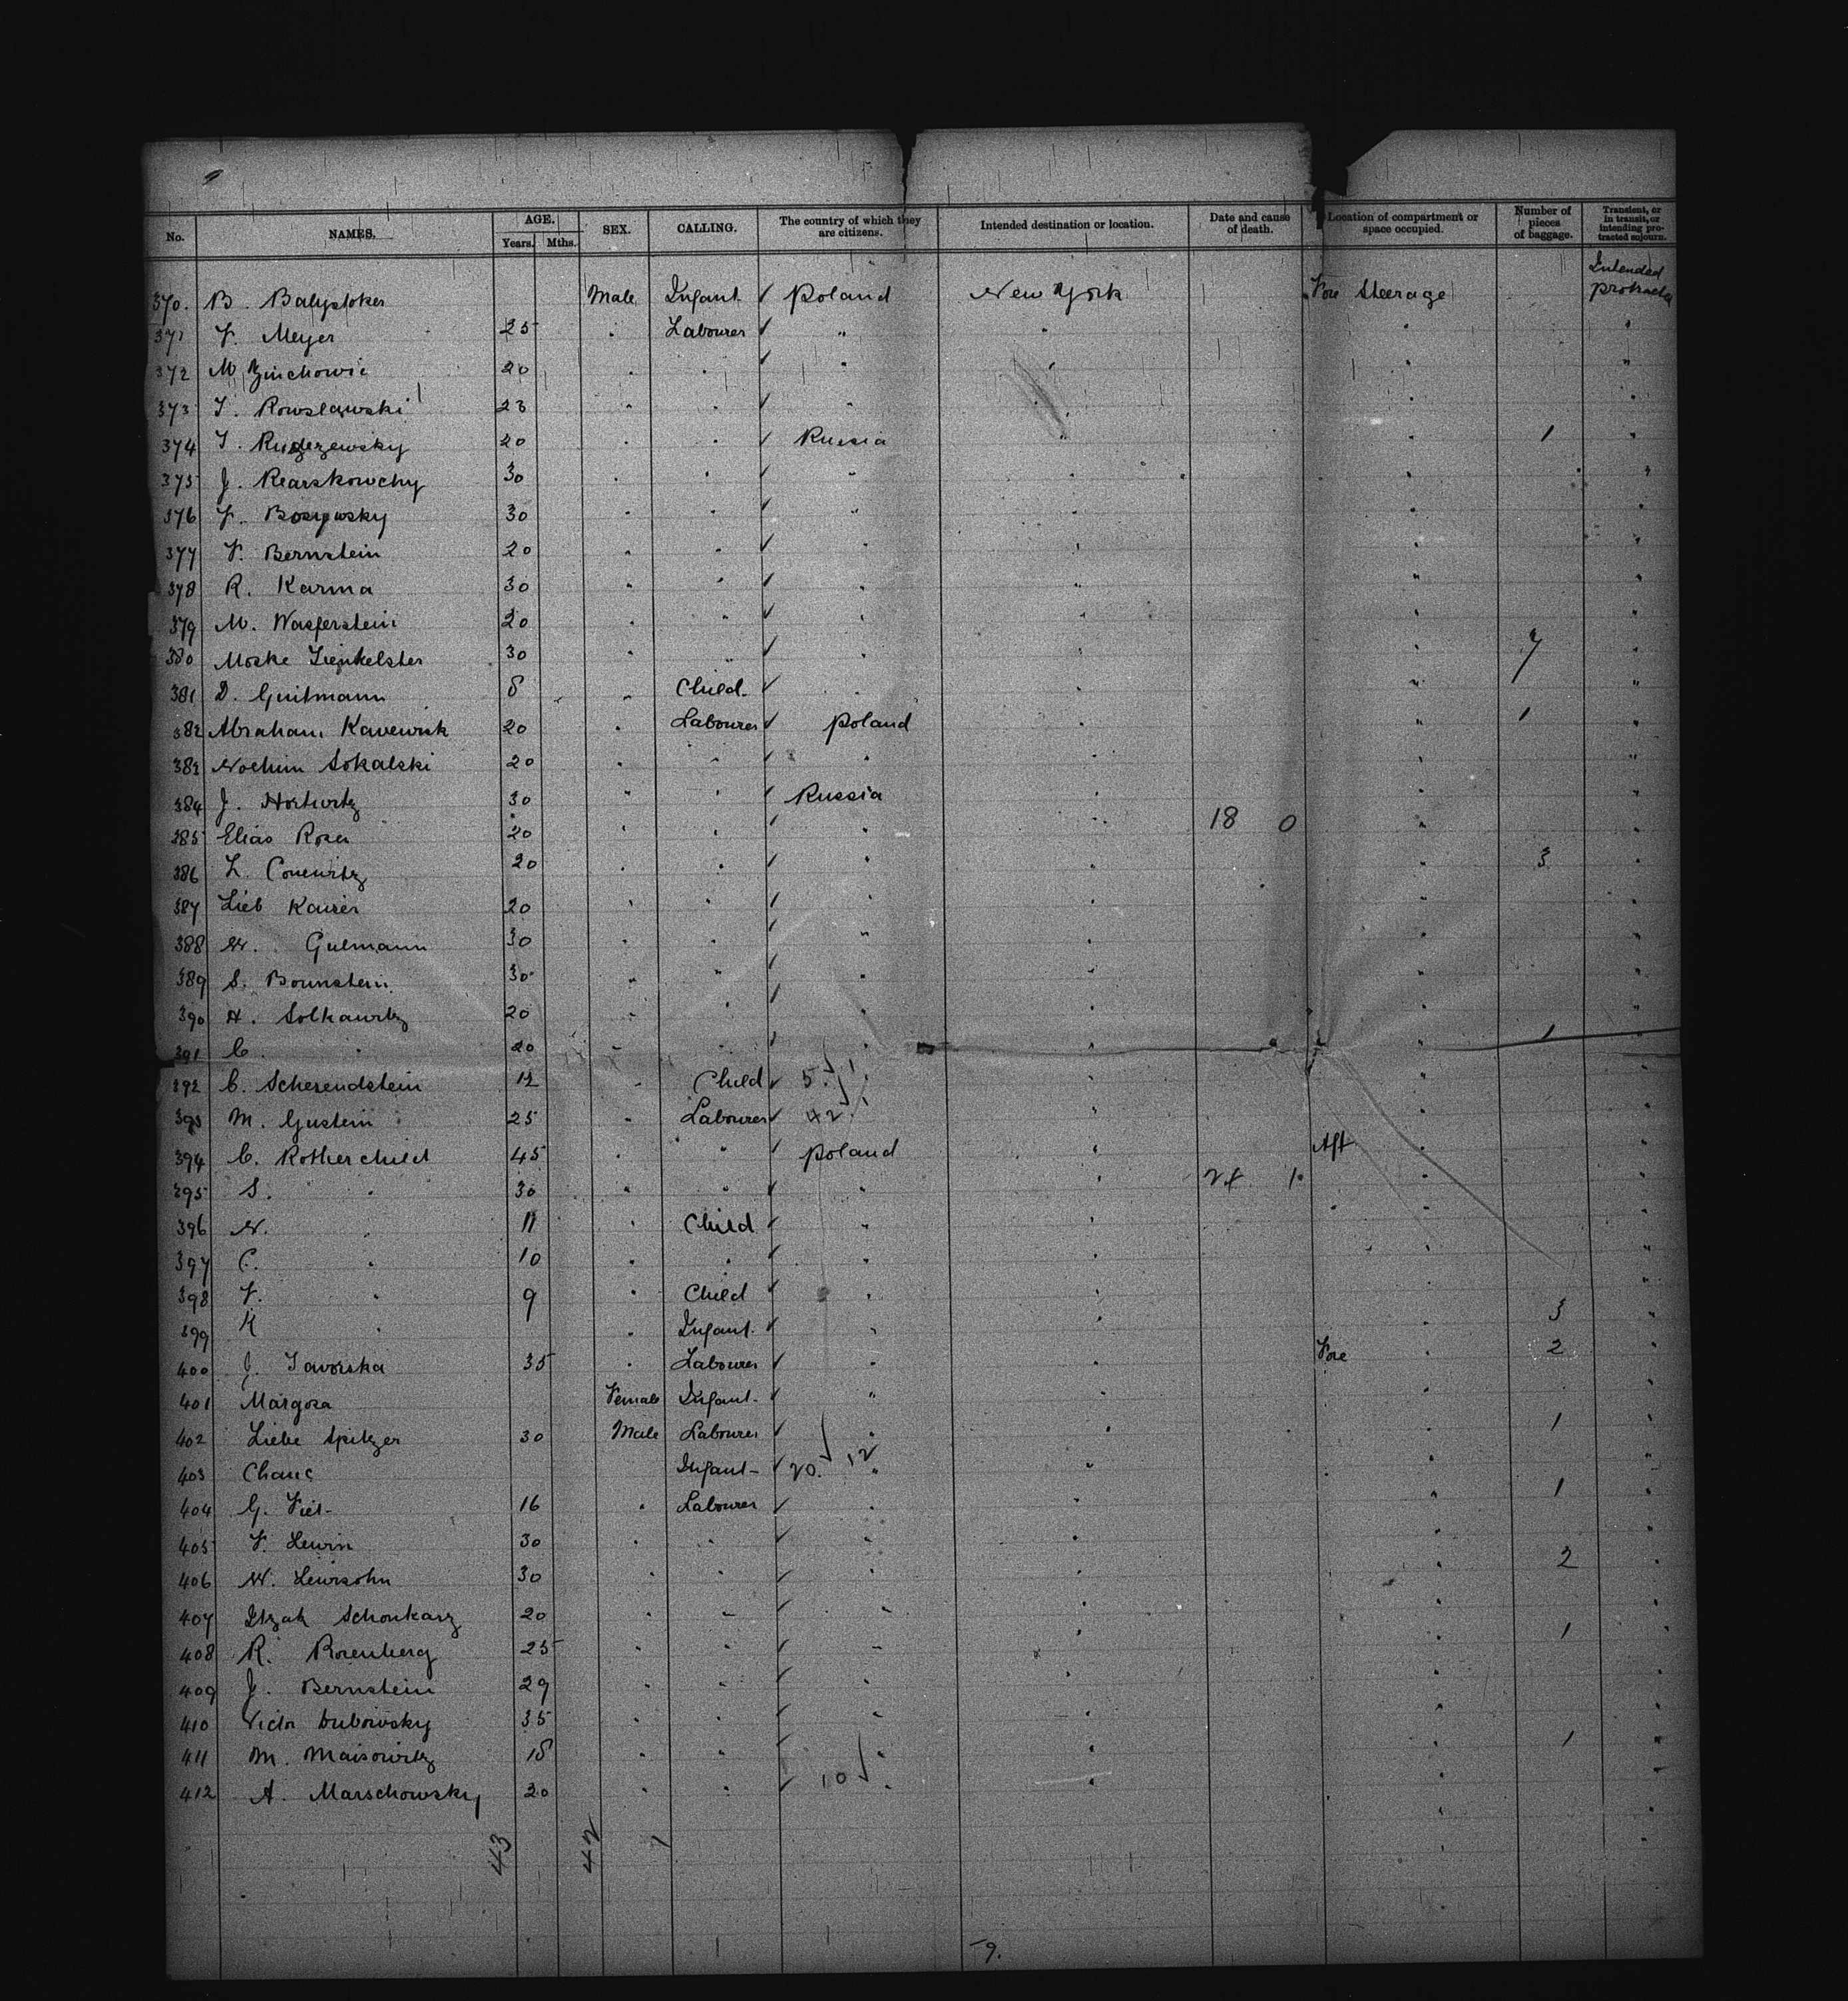 9
No. NAMES. AGE. Years. Mths. SEX. CALLING. The country of which they are citizens. Intended destination or location. Date and cause of death. Location of compartment or space occupied. Number of pieces of baggage. Transient, or in transit, or intending protracted sojourn.
370. B. Balystoker Male Infant ✓ Poland New York Fore Steerage Intended protracted
371 F. Meyer 25 " Labourer ✓ " " " "
372 M 20 " " ✓ " " " "
373 I. Rowslawski 23 " " ✓ " " " "
374 I. 20 " " ✓ Russia " " 1 "
375 J. Rearskowchy 30 " " ✓ " " " "
376 F. 30 " " ✓ " " " "
377 F. Bernstein 20 " " ✓ " " " "
378 R. Karma 30 " " ✓ " " " "
379 M. Wasferstein 20 " " ✓ " " " "
380 Moske 30 " " ✓ " " " 7 "
381 D. Guitmann 8 " Child ✓ " " " "
382 Abraham Kavewisk 20 " Labourer ✓ Poland " " 1 "
383 Nochim Sokalski 20 " " ✓ " " " "
384 J. 30 " " ✓ Russia " " "
385 Elias Rosen 20 " " ✓ " " 18 0 " "
386 L. Conewitz 20 " " ✓ " " " 3 "
387 Lieb Kaiser 20 " " ✓ " " " "
388 N. Gulmann 30 " " ✓ " " " "
389 S. Bounstein 30 " " ✓ " " " "
390 H. Solkawitz 20 " " ✓ " " " "
391 C. " 20 " " ✓ " " " 1 "
392 C. Scherendstein 12 " Child ✓ 5 " " " "
393 M. Gustein 25 " Labourer ✓ 42 " " " "
394 C. Rotherchild 45 " " ✓ Poland " Aft " "
395 S. " 30 " " ✓ " " " "
396 N. " 11 " Child ✓ " " " "
397 C. " 10 " " ✓ " " " "
398 F. " 9 " Child ✓ " " " "
399 K " " Infant ✓ " " " 3 "
400 J. Javorska 35 " Labourer ✓ " " Fore " 2 "
401 Margosa Female Infant ✓ " " " "
402 Liebe Spitzer 30 Male Labourer ✓ " " " 1 "
403 Infant ✓ 20 12 " " " "
404 G. 16 " Labourer ✓ " " " 1 "
405 F. Lewin 30 " " ✓ " " " "
406 N. Lewisohn 30 " " ✓ " " " 2 "
407 Itzak Schonkarz 20 " " ✓ " " " "
408 R. Rosenberg 25 " " ✓ " " " 1 "
409 J. Bernstein 29 " " ✓ " " " "
410 Victor Dubowsky 35 " " ✓ " " " "
411 M. Maisowitz 18 " " ✓ " " " 1 "
412 A. Marschowsky 20 " " ✓ 10 " " " "
43 42 1
9.